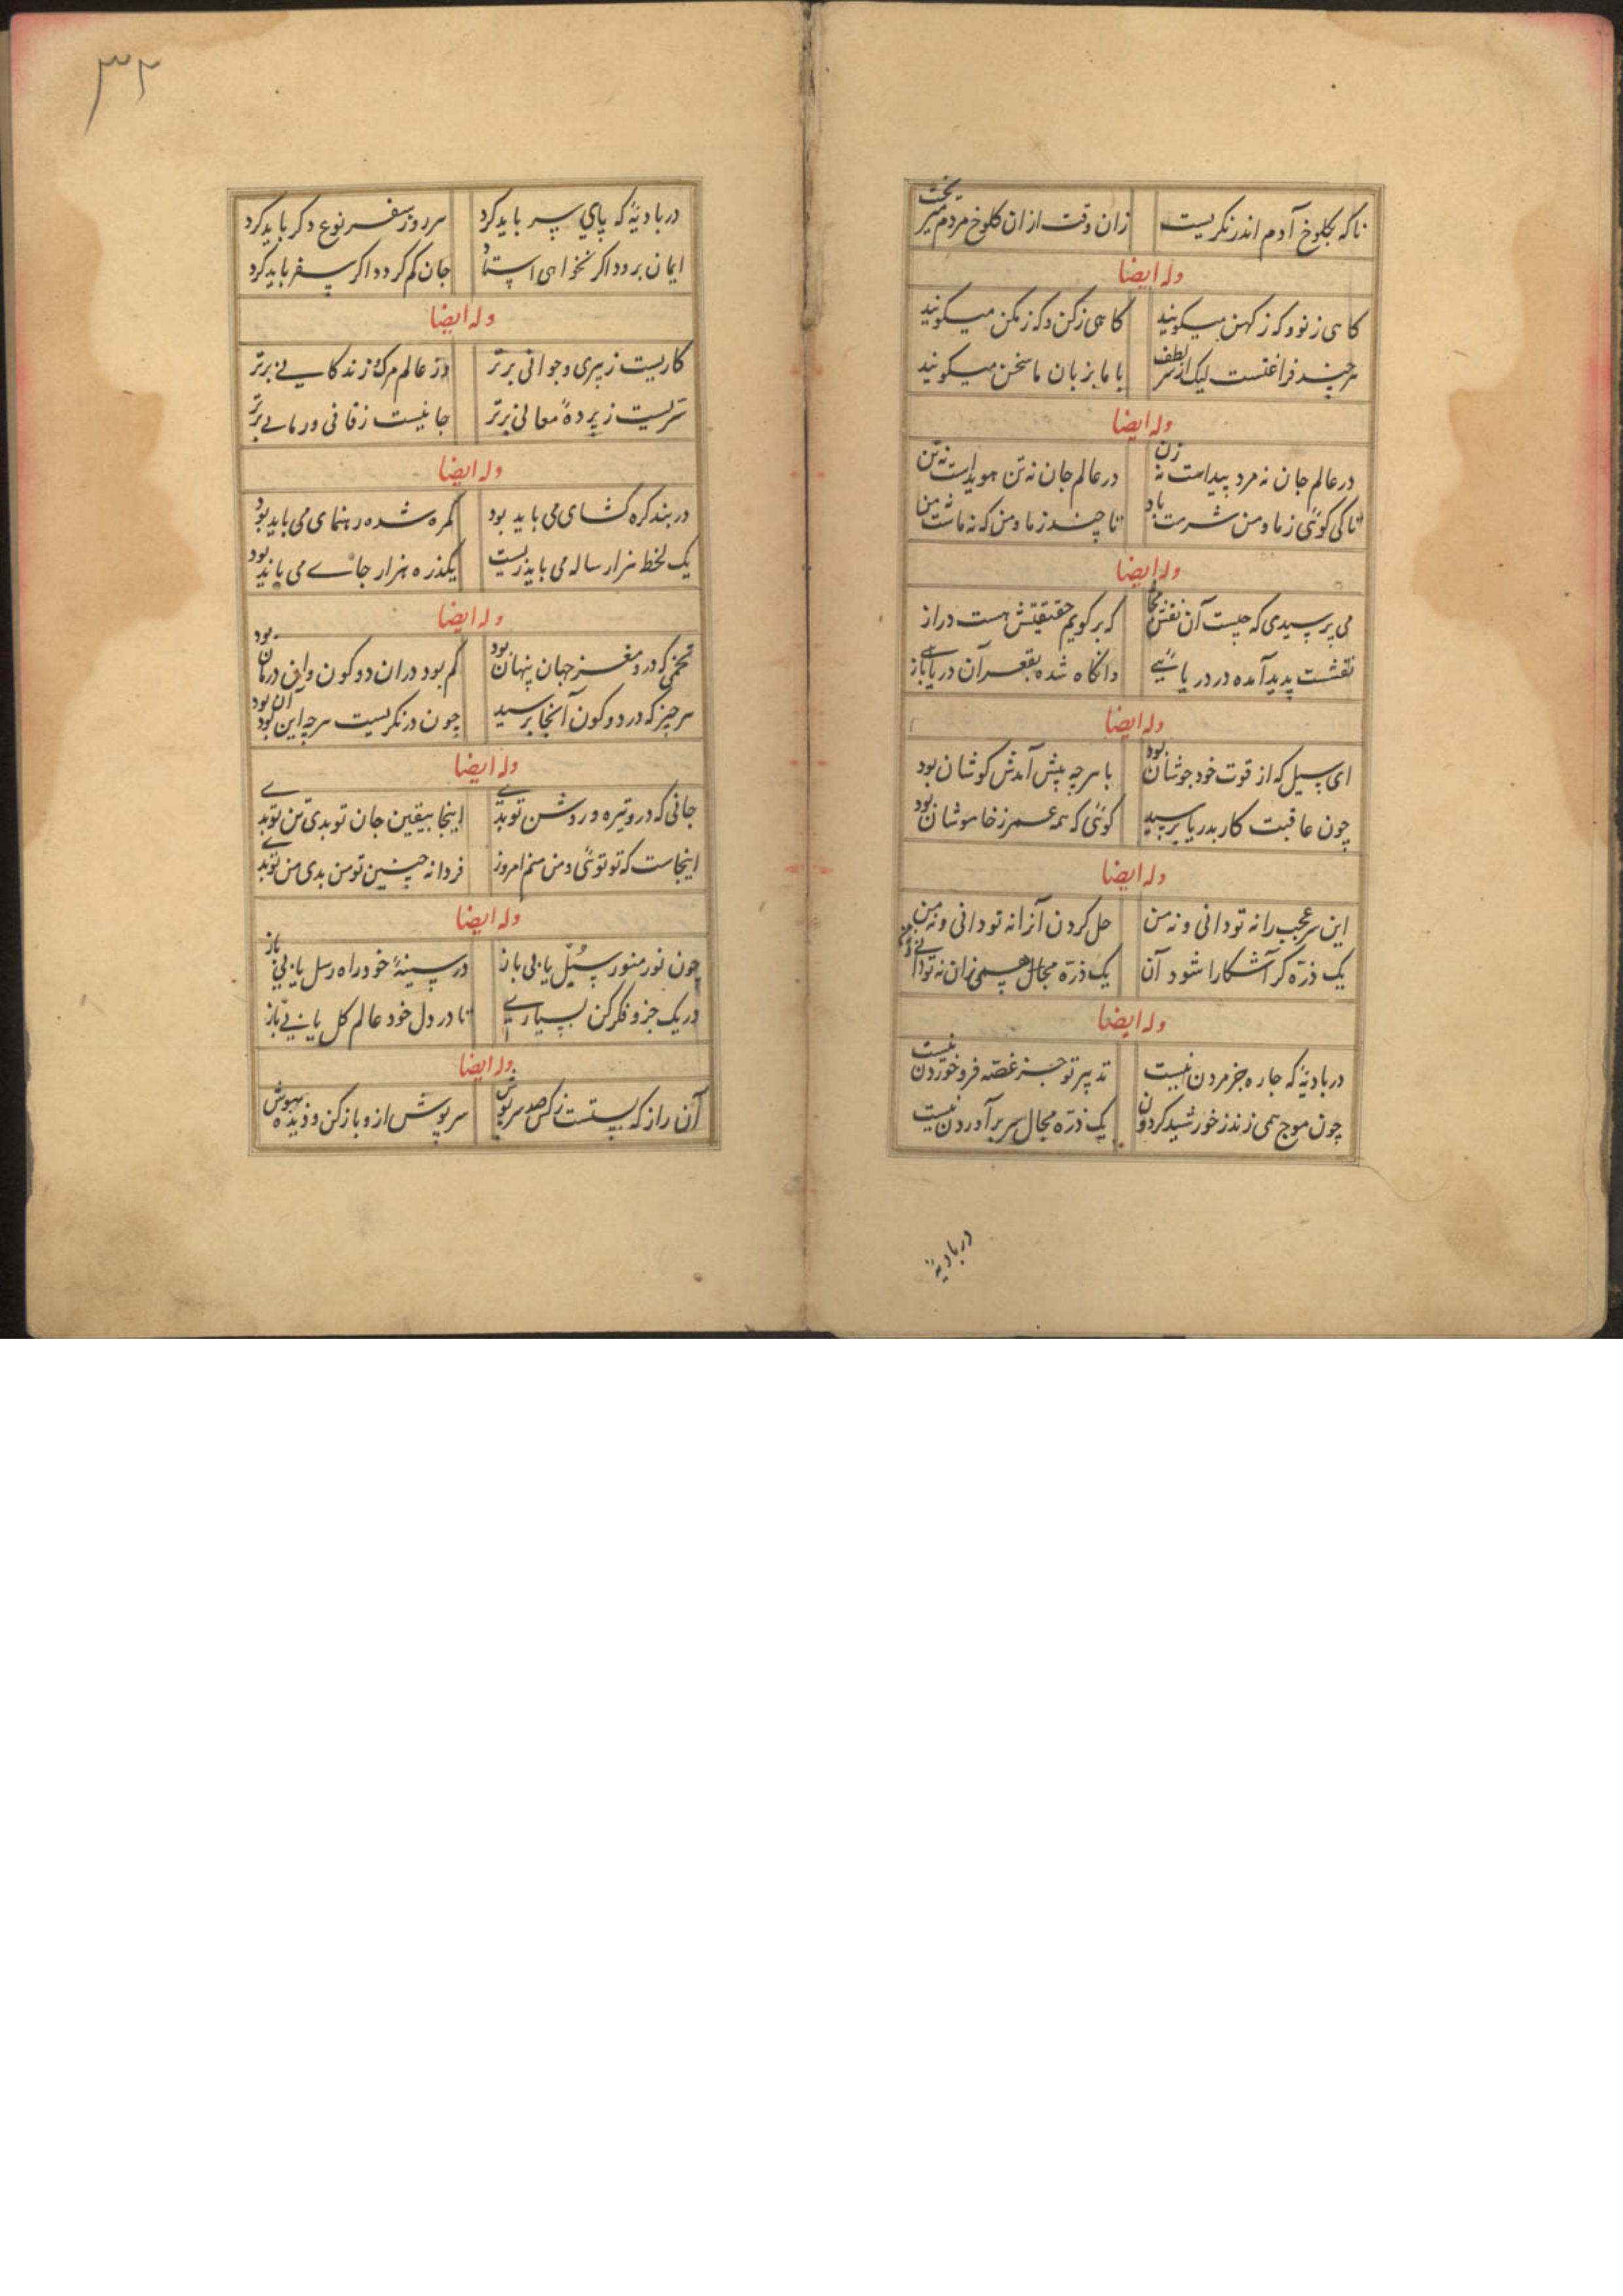 ناکه بکلوخ آدم اندر نکریست زان وقت ازان کلوخ مردم میریخت
وله ایضا
کاهی ز نو و که ز کهن میکویند کاهی ز کن و که ز مکن میکویند
هرچند فراغتست لیک از سر لطف با ما بزبان ما سخن میکویند
وله ایضا
در عالم جان نه مرد پیداست نه زن در عالم جان نه تن هویداست نه تن
تا کی کوئی ز ما و من شرمت باد تا چند ز ما و من که نه ماست نه من
وله ایضا
می پرسیدی که چیست آن نقش مجاز که بر کویم حقیقتش هست دراز
نقشست پدید آمده در دریائی وانکاه شده بقعر آن دریا باز
وله ایضا
ای سیل که از قوت خود جوشان بود با هرچه پیش آمدش کوشان بود
چون عاقبت کار بدریا برسید کوئی که همه عمر ز خاموشان بود
وله ایضا
این سر عجب را نه تو دانی و نه من حل کردن آنرا نه تو دانی و نه من
یک ذره کر آشکارا شود آن یک ذره مجال همی زان نه تو دانی و نه من
وله ایضا
در بادیهٔ که چاره جز مردن نیست تدبیر تو جز غصه فرو خوردن نیست
چون موج همی زند ز خورشید کردون یک ذره مجال سر برآوردن نیست
در بادیهٔ
۳۲
در بادیهٔ که پای سر باید کرد هر روز سفر نوع دکر باید کرد
ایمان برود اکر نخواهی استاد جان کم کردد اکر سفر باید کرد
وله ایضا
کاریست ز پیری و جوانی برتر وز عالم مرک و زندکانی برتر
سریست ز پردهٔ معانی برتر جانیست ز فانی و زمانی برتر
وله ایضا
در بند کره کشای می باید بود کمره شده رهنمای می باید بود
یک لحظ هزار ساله می باید زیست یکذره هزار جای می باید بود
وله ایضا
تخمی که درو مغز جهان پنهان بود کم بود دران دو کون و این درمان بود
هر چیز که در دو کون آنجا برسید چون درنکریست هرچه این بود آن بود
وله ایضا
جانی که درو تیره و روشن تو بدی اینجا بیقین جان تو بدی تن تو بدی
اینجاست که تو توئی و من منم امروز فردا نه چنین تو من بدی من تو بدی
وله ایضا
چون نور منور سبل یابی باز در سینهٔ خود راه رسل یابی باز
در یک جزو فکر کن بسیاری تا در دل خود عالم کل یابی باز
وله ایضا
آن راز که بستست ز کس صد سرپوش سرپوش ازو باز کن و دیده بپوش